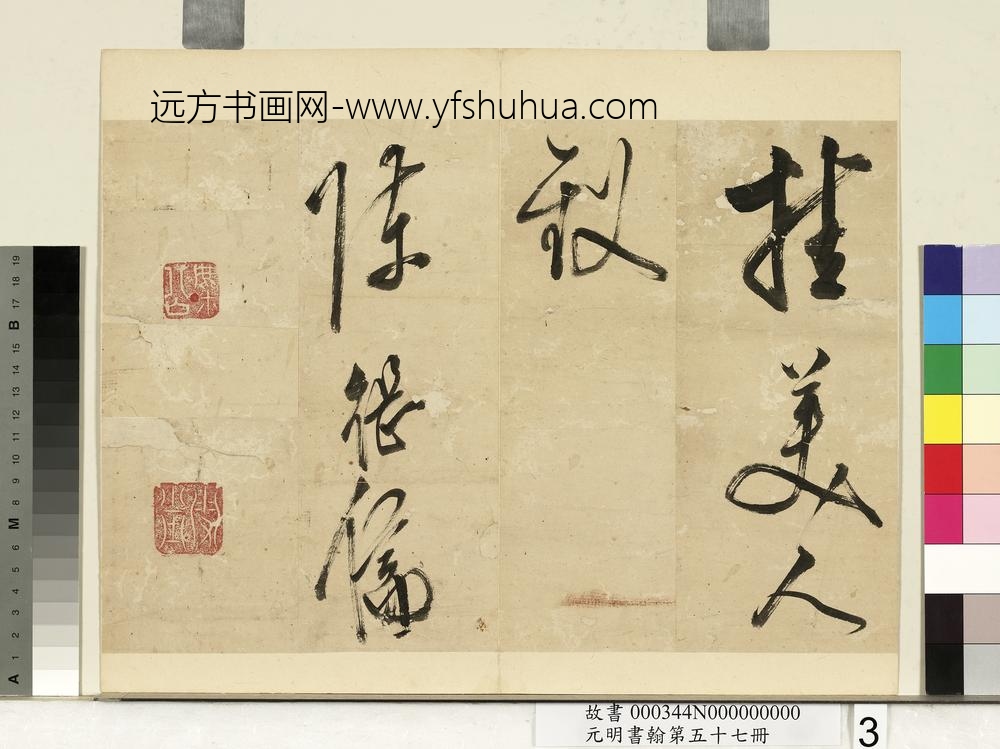 远方书画网-www.yfshuhua.com
挂美人
釵
陳繼儒
故書 000344N000000000
元明書翰第五十七冊
3
19
18
17
B
16
15
14
13
12
11
10
9
8
M
7
6
5
4
3
2
1
A